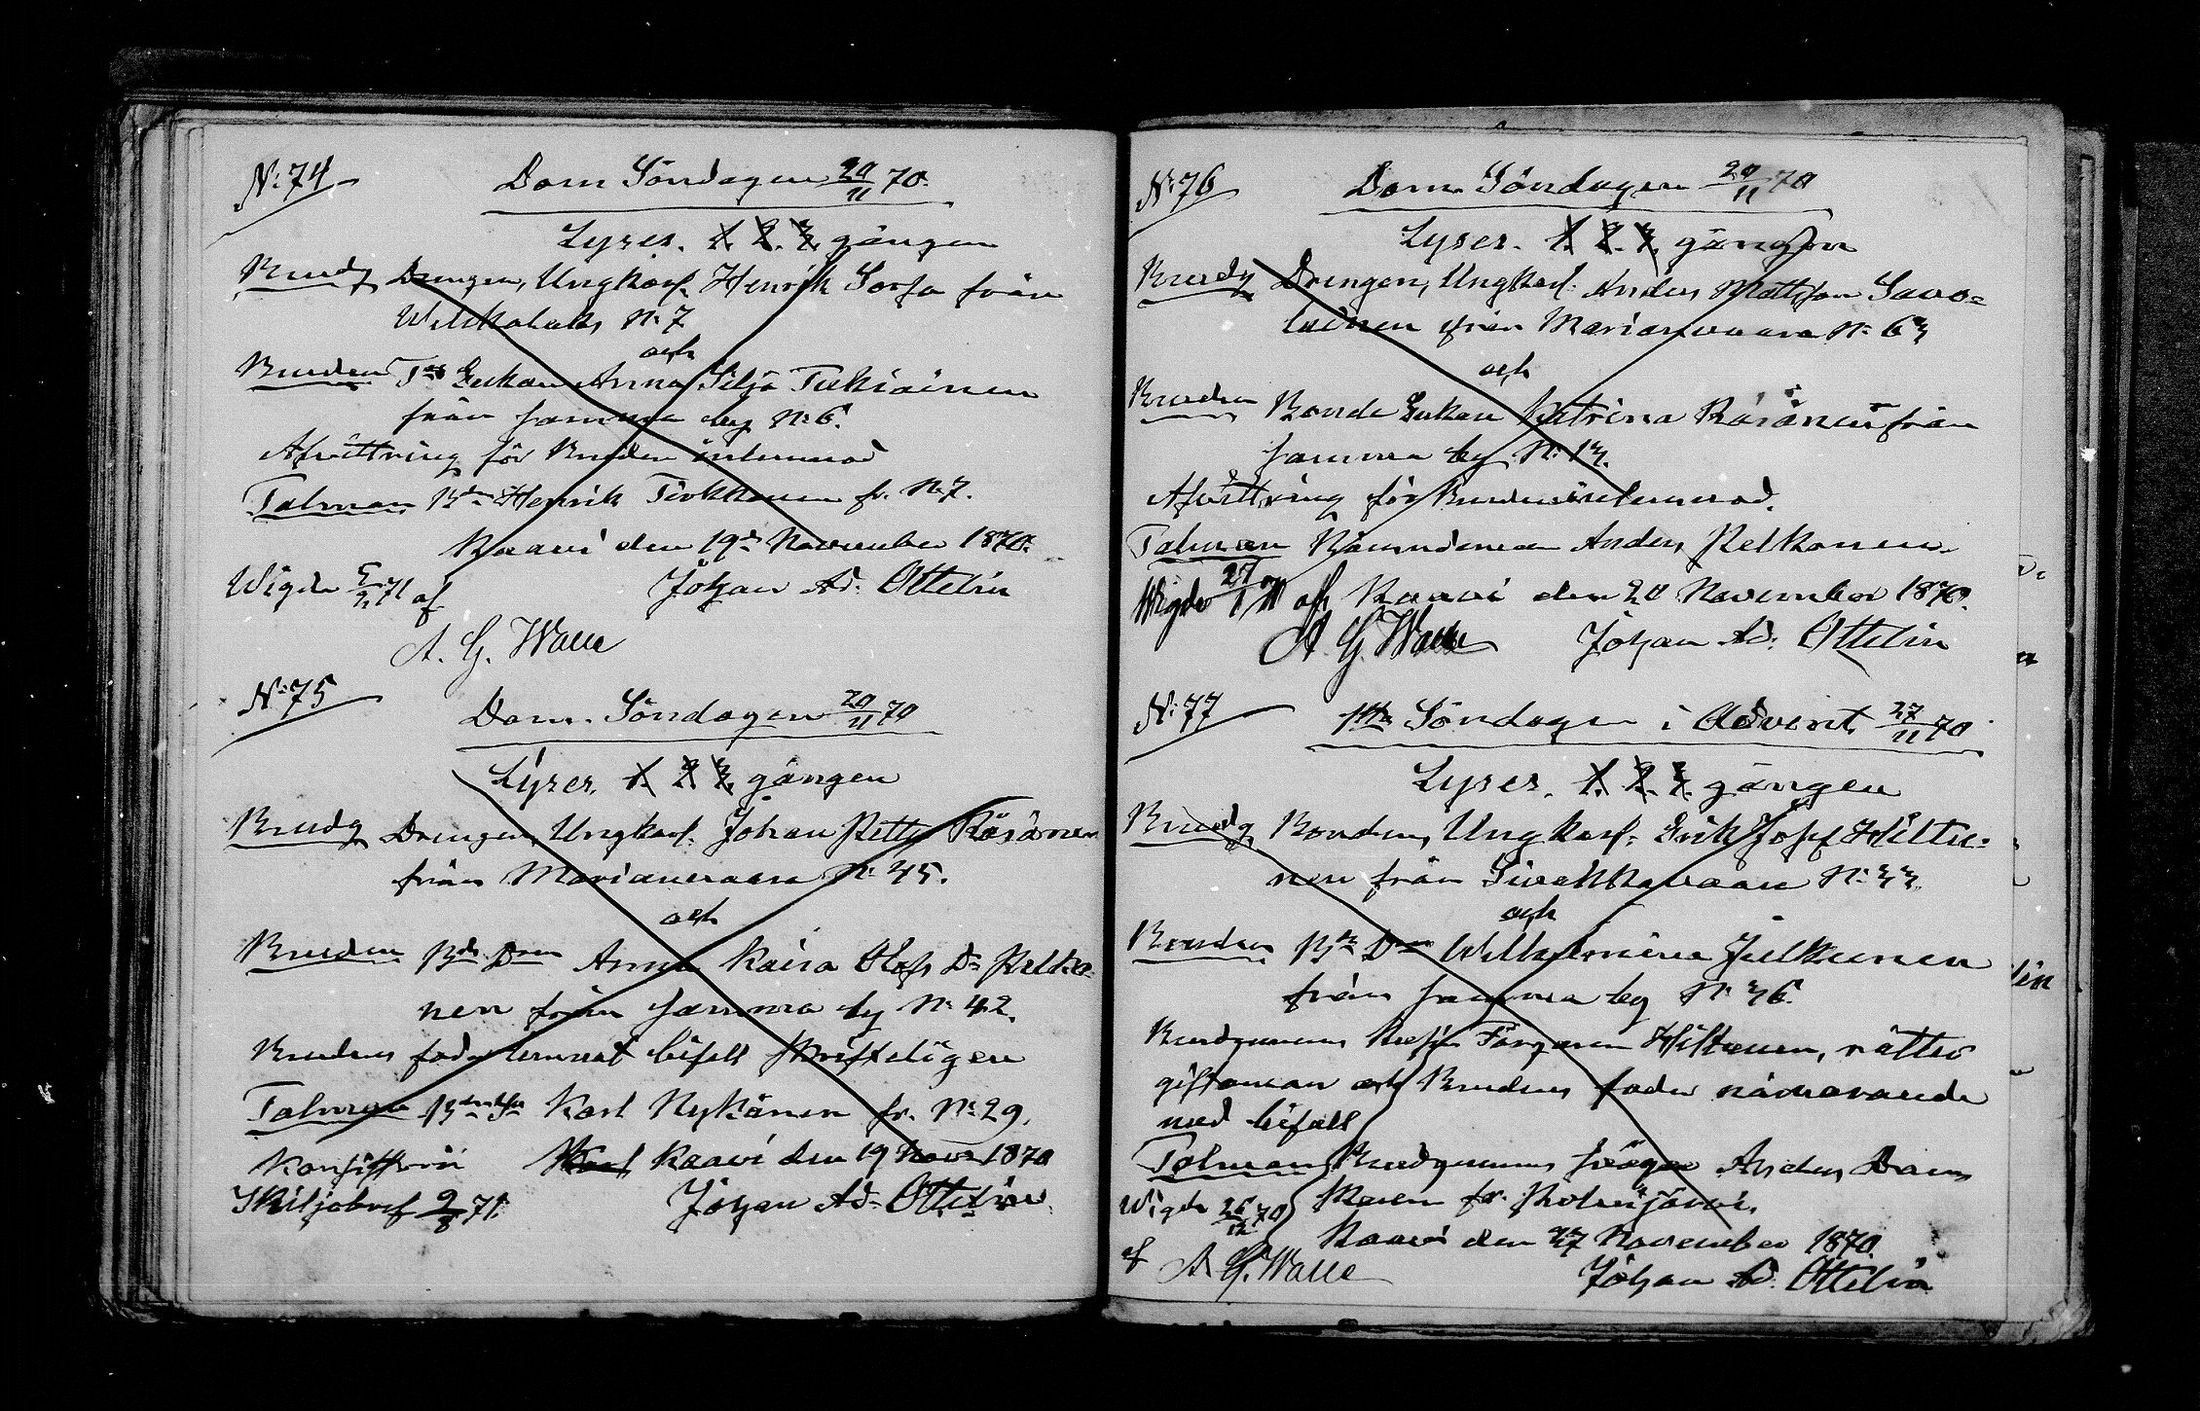 N:74 Dom Söndagen 20/11 70.
Lyses. 1. 2. 3. gången
Brudg Drengen, Ungkarl. Henrik Sorsa från
N:7
och
Bruden Enkan Anna Silja Tukiainen
från samma by N:6.
Afvittring för Bruden inlemnad
Talman Henrik fr. N:7.
Kaavi den 19de November 1870.
Wigde 5/2 71 af Johan Ad. Ottelin
A. G. Walle
N:75
Dom. Söndagen 20/11 70
Lyses. 1. 2. 3. gången
Brudg Drengen, Ungkarl. Johan Petter Räsänen
från Marianvaara N:45.
och
Bruden Anna Kaisa Olofs Dr Pelko-
nen från samma by N:42.
Brudens fader lemnat bifall skrifteligen
Talman Karl Nykänen fr. N:29.
Kaavi den 19 Nov. 1870
Skiljobref Johan Ad. Ottelin
N:76 Dom. Söndagen 20/11 70
Lyses. 1. 2. 3. gången
Brudg Drengen, Ungkarl. Anders Mattsson Savo-
lainen från Marianvaara N:63
och
Bruden Bonde Enkan Katrina Räsänen från
samma by N:13.
Afvittring för Bruden inlemnad.
Talman Nämndeman Anders Pelkonen.
Wigde af Kaavi den 20 November 1870.
A. G. Walle Johan Ad. Ottelin
N:77 1sta Söndagen i Advent 27/11 70
Lyses. 1. 2. 3. gången
Brudg Bonden, Ungkarl. Erik Josef Hiltu-
nen från Sivakkavaara N:33.
och
Bruden Wilhelmina Julkunen
från samma by N:36.
Brudgummens Hiltunen, rätter
giftoman och Brudens fader närvarande
med bifall
Talman Brudgummens svåger Anders Dans
Wigde 26/12 70 fr.
Kaavi den 27 November 1870
af A. G. Walle Johan Ad. Ottelin